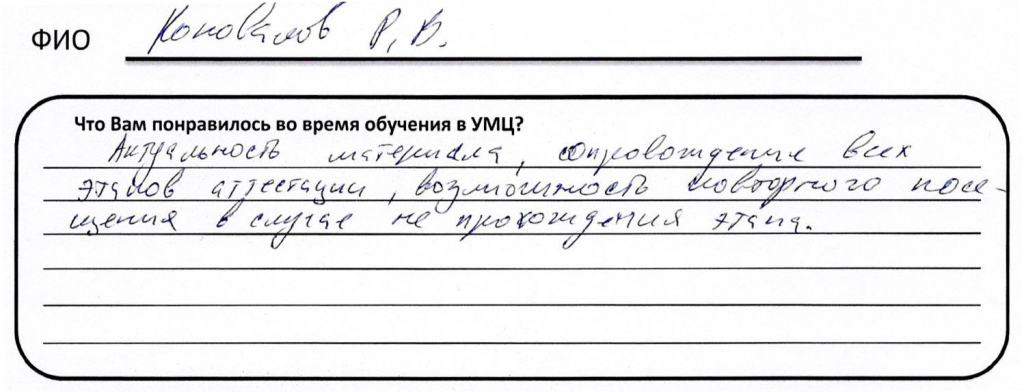 ФИО Коновалов Р. В.
Что Вам понравилось во время обучения в УМЦ?
Актуальность материала, сопровождение всех
этапов аттестации, возможность повторного посе-
щения в случае не прохождения этапа.